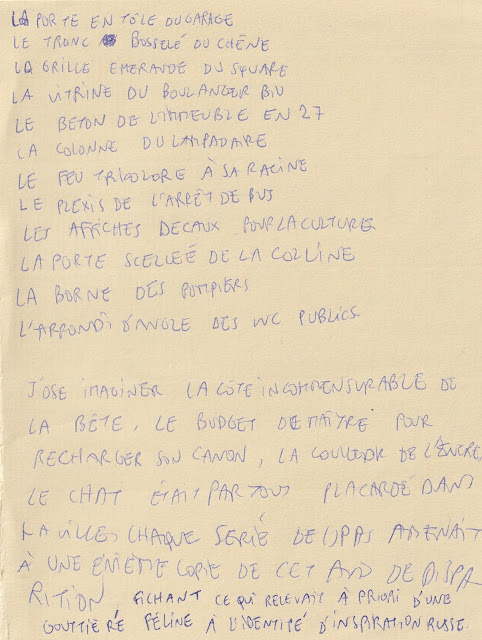 LA PORTE EN TÔLE DU GARAGE
LE TRONC BOSSELÉ DU CHÊNE
LA GRILLE EMERAUDE DU SQUARE
LA VITRINE DU BOULANGER BIO
LE BETON DE L'IMMEUBLE EN 27
LA COLONNE DU LAMPADAIRE
LE FEU TRICOLORE À SA RACINE
LE PLEXIS DE L'ARRÊT DE BUS
LES AFFICHES DECAUX POUR LA CULTURE
LA PORTE SCELLEÉ DE LA COLLINE
LA BORNE DES POMPIERS
L'ARRONDI D'ANGLE DES WC PUBLICS
J'OSE IMAGINER LA CÔTE INCOMMENSURABLE DE
LA BÊTE, LE BUDGET DE MAÎTRE POUR
RECHARGER SON CANON, LA COULEUR DE L'ENCRE,
LE CHAT ÉTAIT PARTOUT PLACARDÉ DANS
LA VILLE, CHAQUE SERIÉ DE PAS AMENAIT
À UNE ÉNIÈME COPIE DE CET AVIS DE DISPA
RITION FICHANT CE QUI RELEVAIT À PRIORI D'UNE
GOUTTIÈRÉ FÉLINE À L'IDENTITÉ D'INSPIRATION RUSSE.